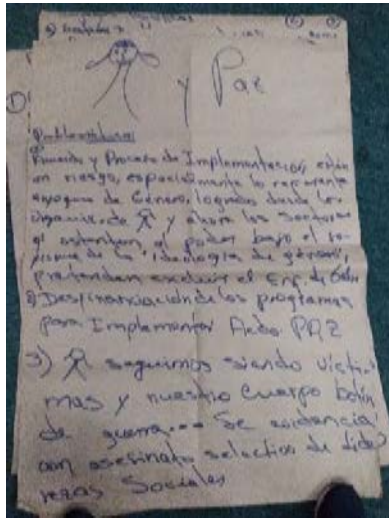 y Paz
Problemáticas
Acuerdo y Proceso de Implementación están
en riesgo, especialmente lo referente
enfoque de Género, logrado desde las
organiz. de y ahora los Sectores
q' ostentan el poder bajo el so-
fisma de la "ideología de género",
pretenden excluir el Enf. de Gén.
2) Despinanciación de los programas
para Implementar Acdo PAZ
3) seguimos siendo vícti-
mas y nuestro Cuerpo botín
de guerra... Se evidencia
con asesinato selectivo de lide-
rezas Sociales